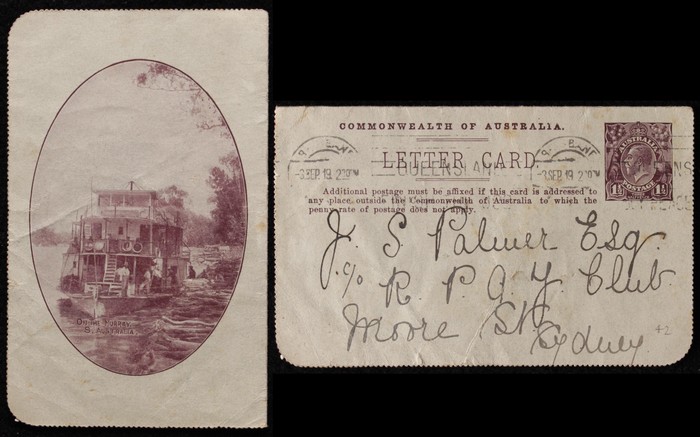 On the Murray,
S. Australia.
COMMONWEALTH OF AUSTRALIA.
LETTER CARD.
BRISBANE
-3 SEP 19 2
QUEENSLAND
-3 SEP 19 2
AUSTRALIA
1½ POSTAGE 1½
Additional postage must be affixed if this card is addressed to
any place outside the Commonwealth of Australia to which the
penny rate of postage does not apply.
J. S. Palmer Esq.
c/o R P A Y Club
Moore St
Sydney
42